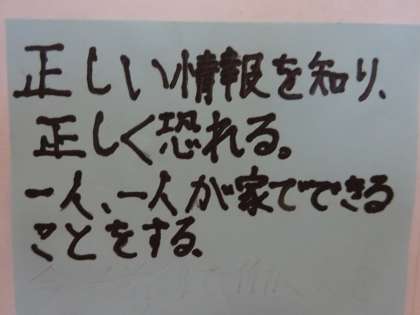 正しい情報を知り、
正しく恐れる。
一人、一人が家でできる
ことをする。